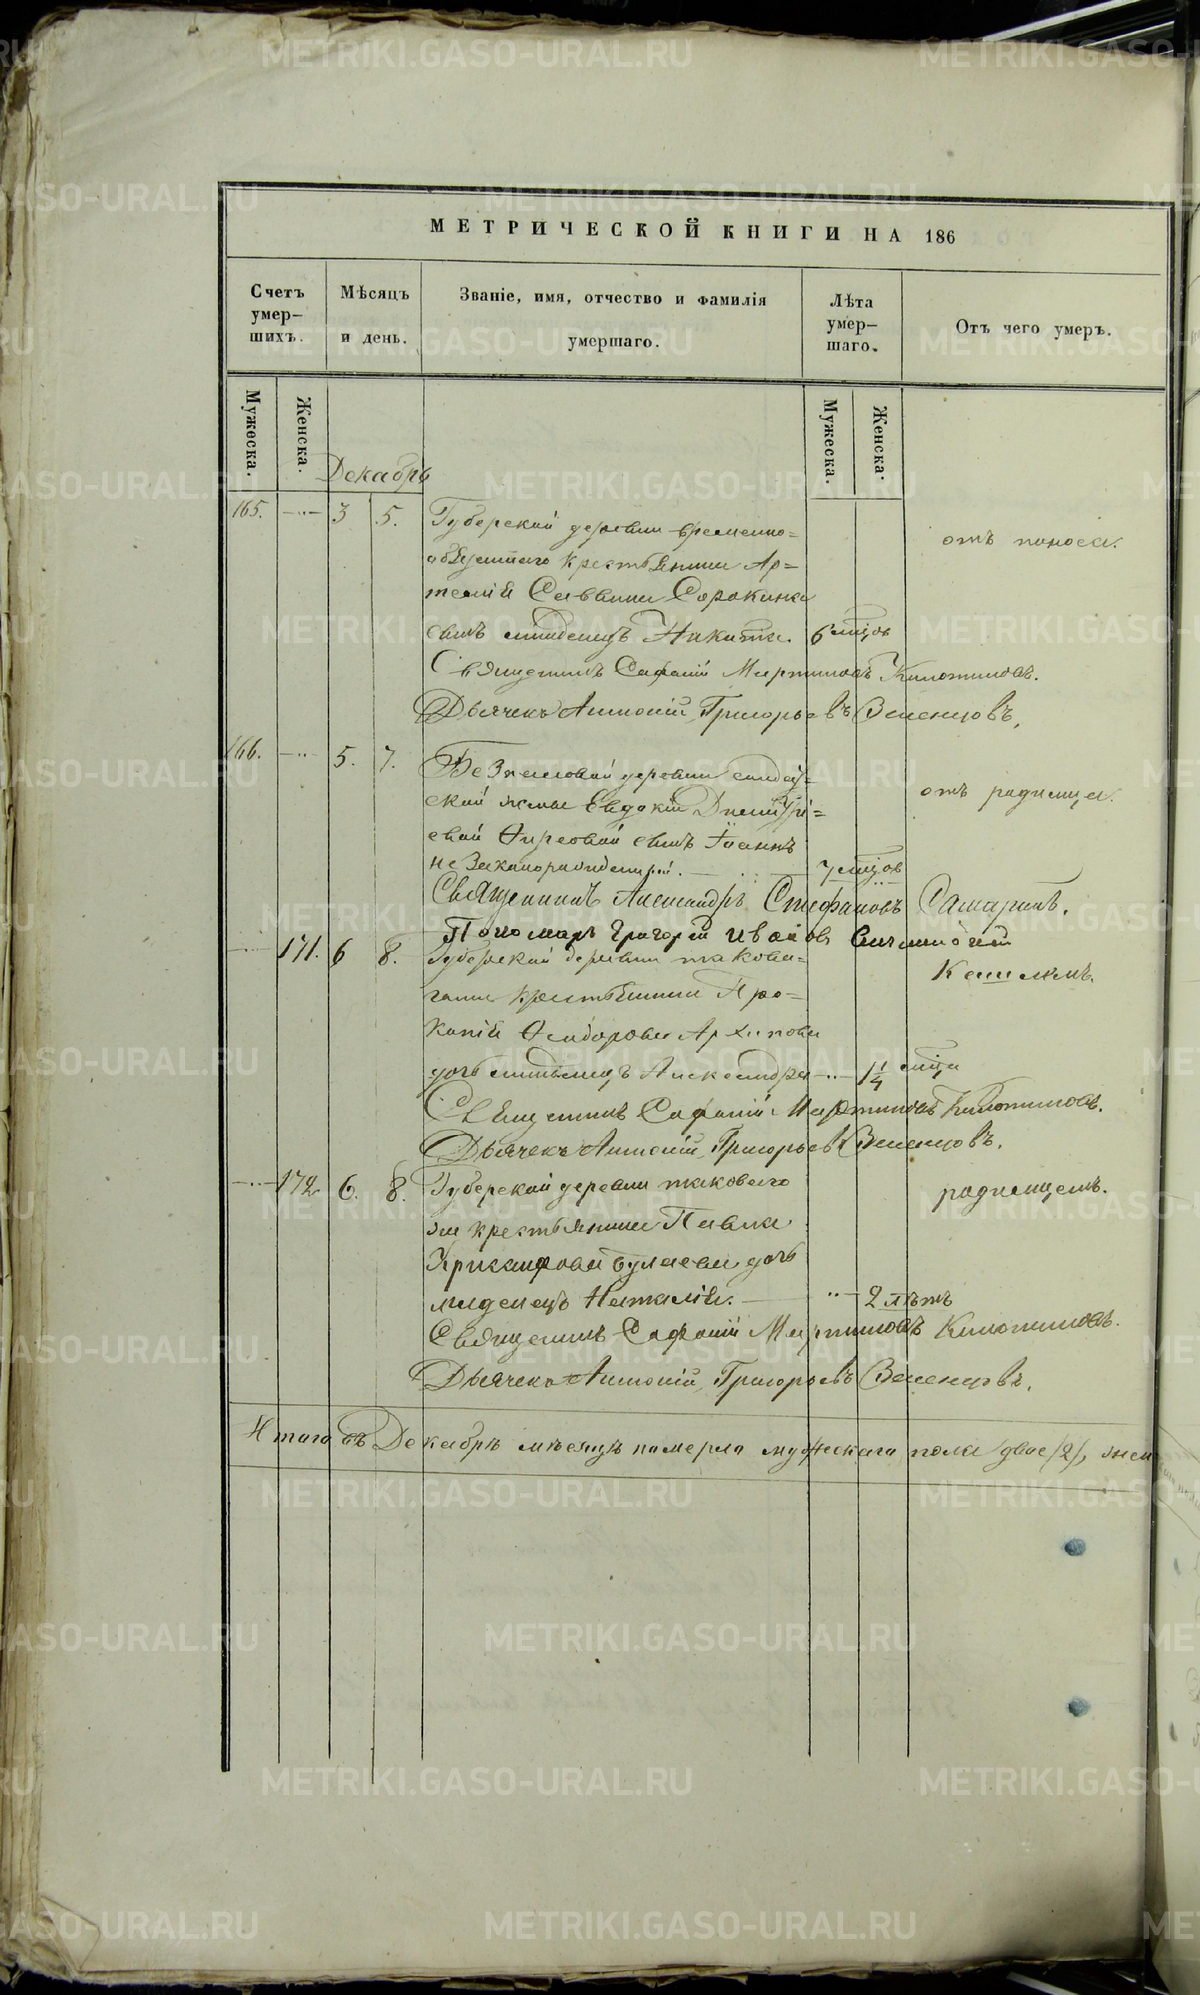 МЕТРИЧЕСКОЙ КНИГИ НА 186
Счетъ умер-шихъ.
Мѣсяцъ и день.
Званіе, имя, отчество и фамилія умершаго.
Лѣта умер-шаго.
Отъ чего умеръ.
Мужеска.
Женска.
Мужеска.
Женска.
Декабрь
165. 3 5. Губерской деревни временно=
обязаннаго крестьянина Ар=
темія Саввина Сорокина
сынъ младенецъ Никита. 6 мѣцов
отъ поноса.
Священникъ Сафоній Мартиновъ
Дьячекъ Антоній Григорьевъ Зеленцовъ.
166. 5. 7. деревни солдат=
ской жены Евдокіи Дмитрі=
евой сынъ Іоаннъ
не законорожденный. 7 мѣцов
отъ родимца.
Священникъ Александръ Стефановъ Самаринъ.
Пономарь Григорій Ивановъ
171. 6 8. Губерской деревни таковаго=
крестьянина Про=
копія Ѳедорова Архипова
дочь младенецъ Александра 1 1/4 мѣца
Кашлемъ.
Священникъ Сафоній Мартиновъ
Дьячекъ Антоній Григорьевъ Зеленцовъ.
172 6. 8. Губерской деревни таковаго
же крестьянина Павла
дочь
младенецъ Наталія. 2 лѣтъ
родимцемъ.
Священникъ Сафоній Мартиновъ
Дьячекъ Антоній Григорьевъ Зеленцовъ.
Итого въ Декабрѣ мѣсяцѣ померло мужескаго пола двое /2/, жен
METRIKI.GASO-URAL.RU